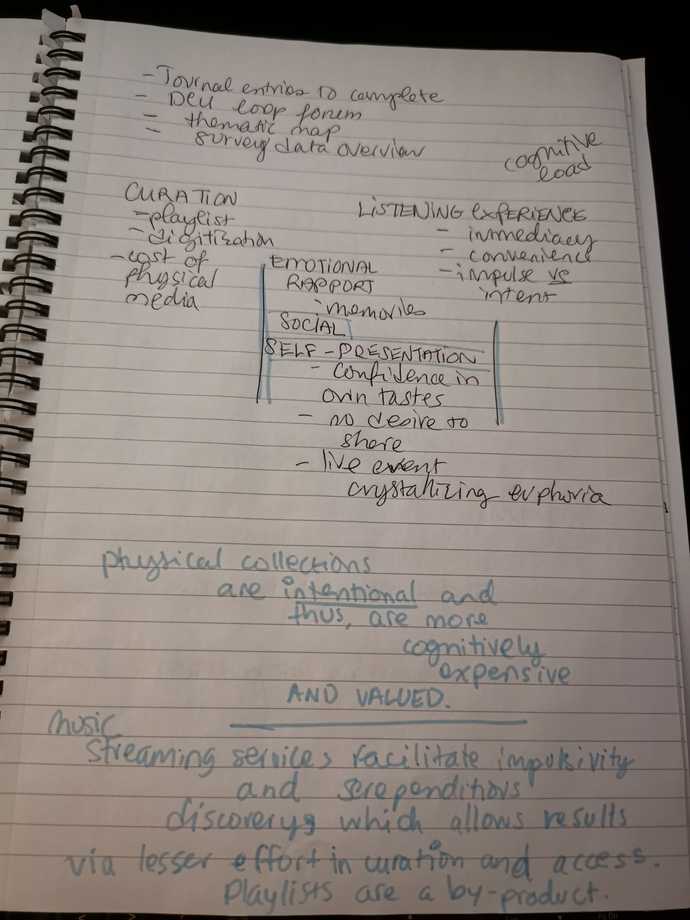 - Journal entries to complete
- DCU loop forum
- thematic map
- survey data overview
cognitive
load
CURATION
- playlist
- digitization
- cost of
physical
media
LISTENING EXPERIENCE
- immediacy
- convenience
- impulse vs
intent
EMOTIONAL
RAPPORT
- memories
SOCIAL
SELF-PRESENTATION
- confidence in
own tastes
- no desire to
share
- live event
crystallizing euphoria
physical collections
are intentional and
thus, are more
cognitively
expensive
AND VALUED.
music
streaming services facilitate impulsivity
and serependitious
discovery, which allows results
via lesser effort in curation and access.
Playlists are a by-product.